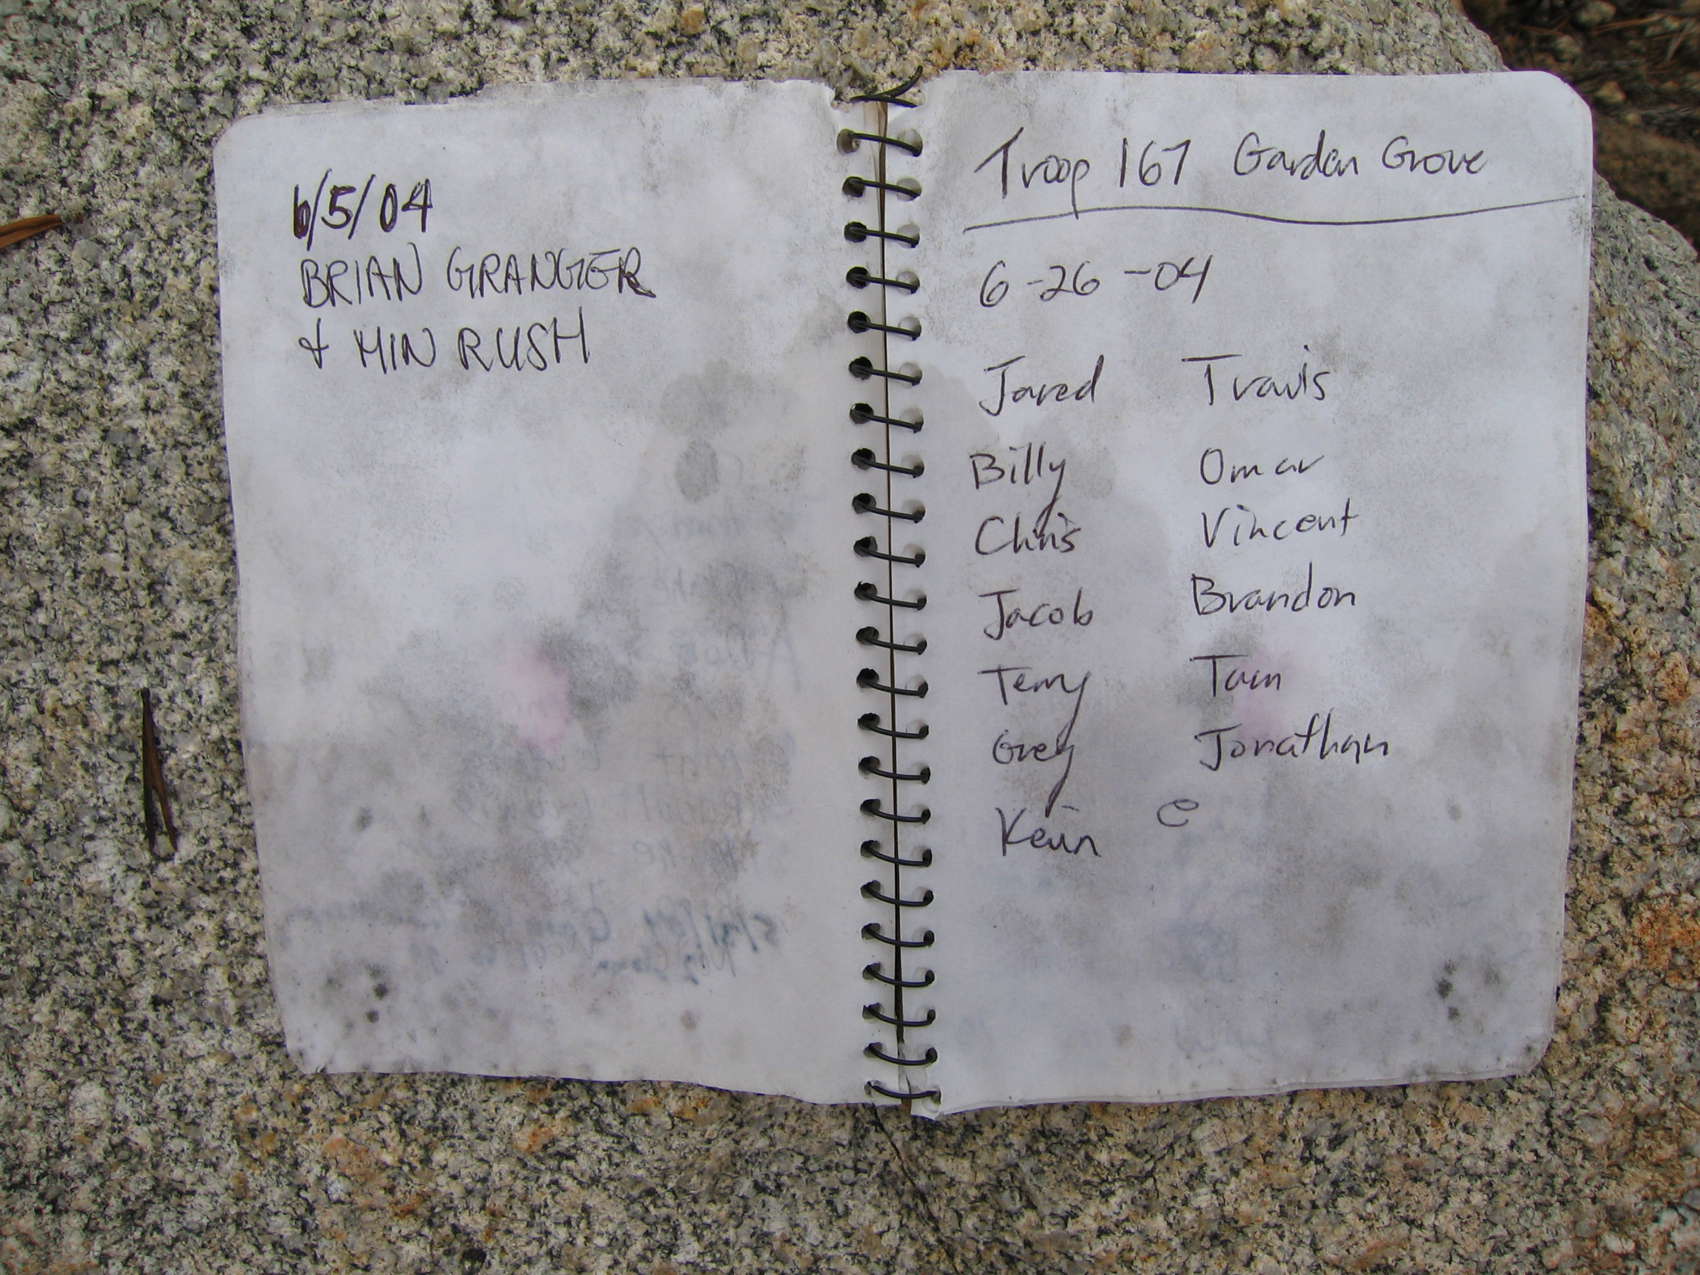 6/5/04
BRIAN GRANGER
& MIN RUSH
Troop 167 Garden Grove
6-26-04
Jared Travis
Billy Omar
Chris Vincent
Jacob Brandon
Terry Tam
Greg Jonathan
Kevin